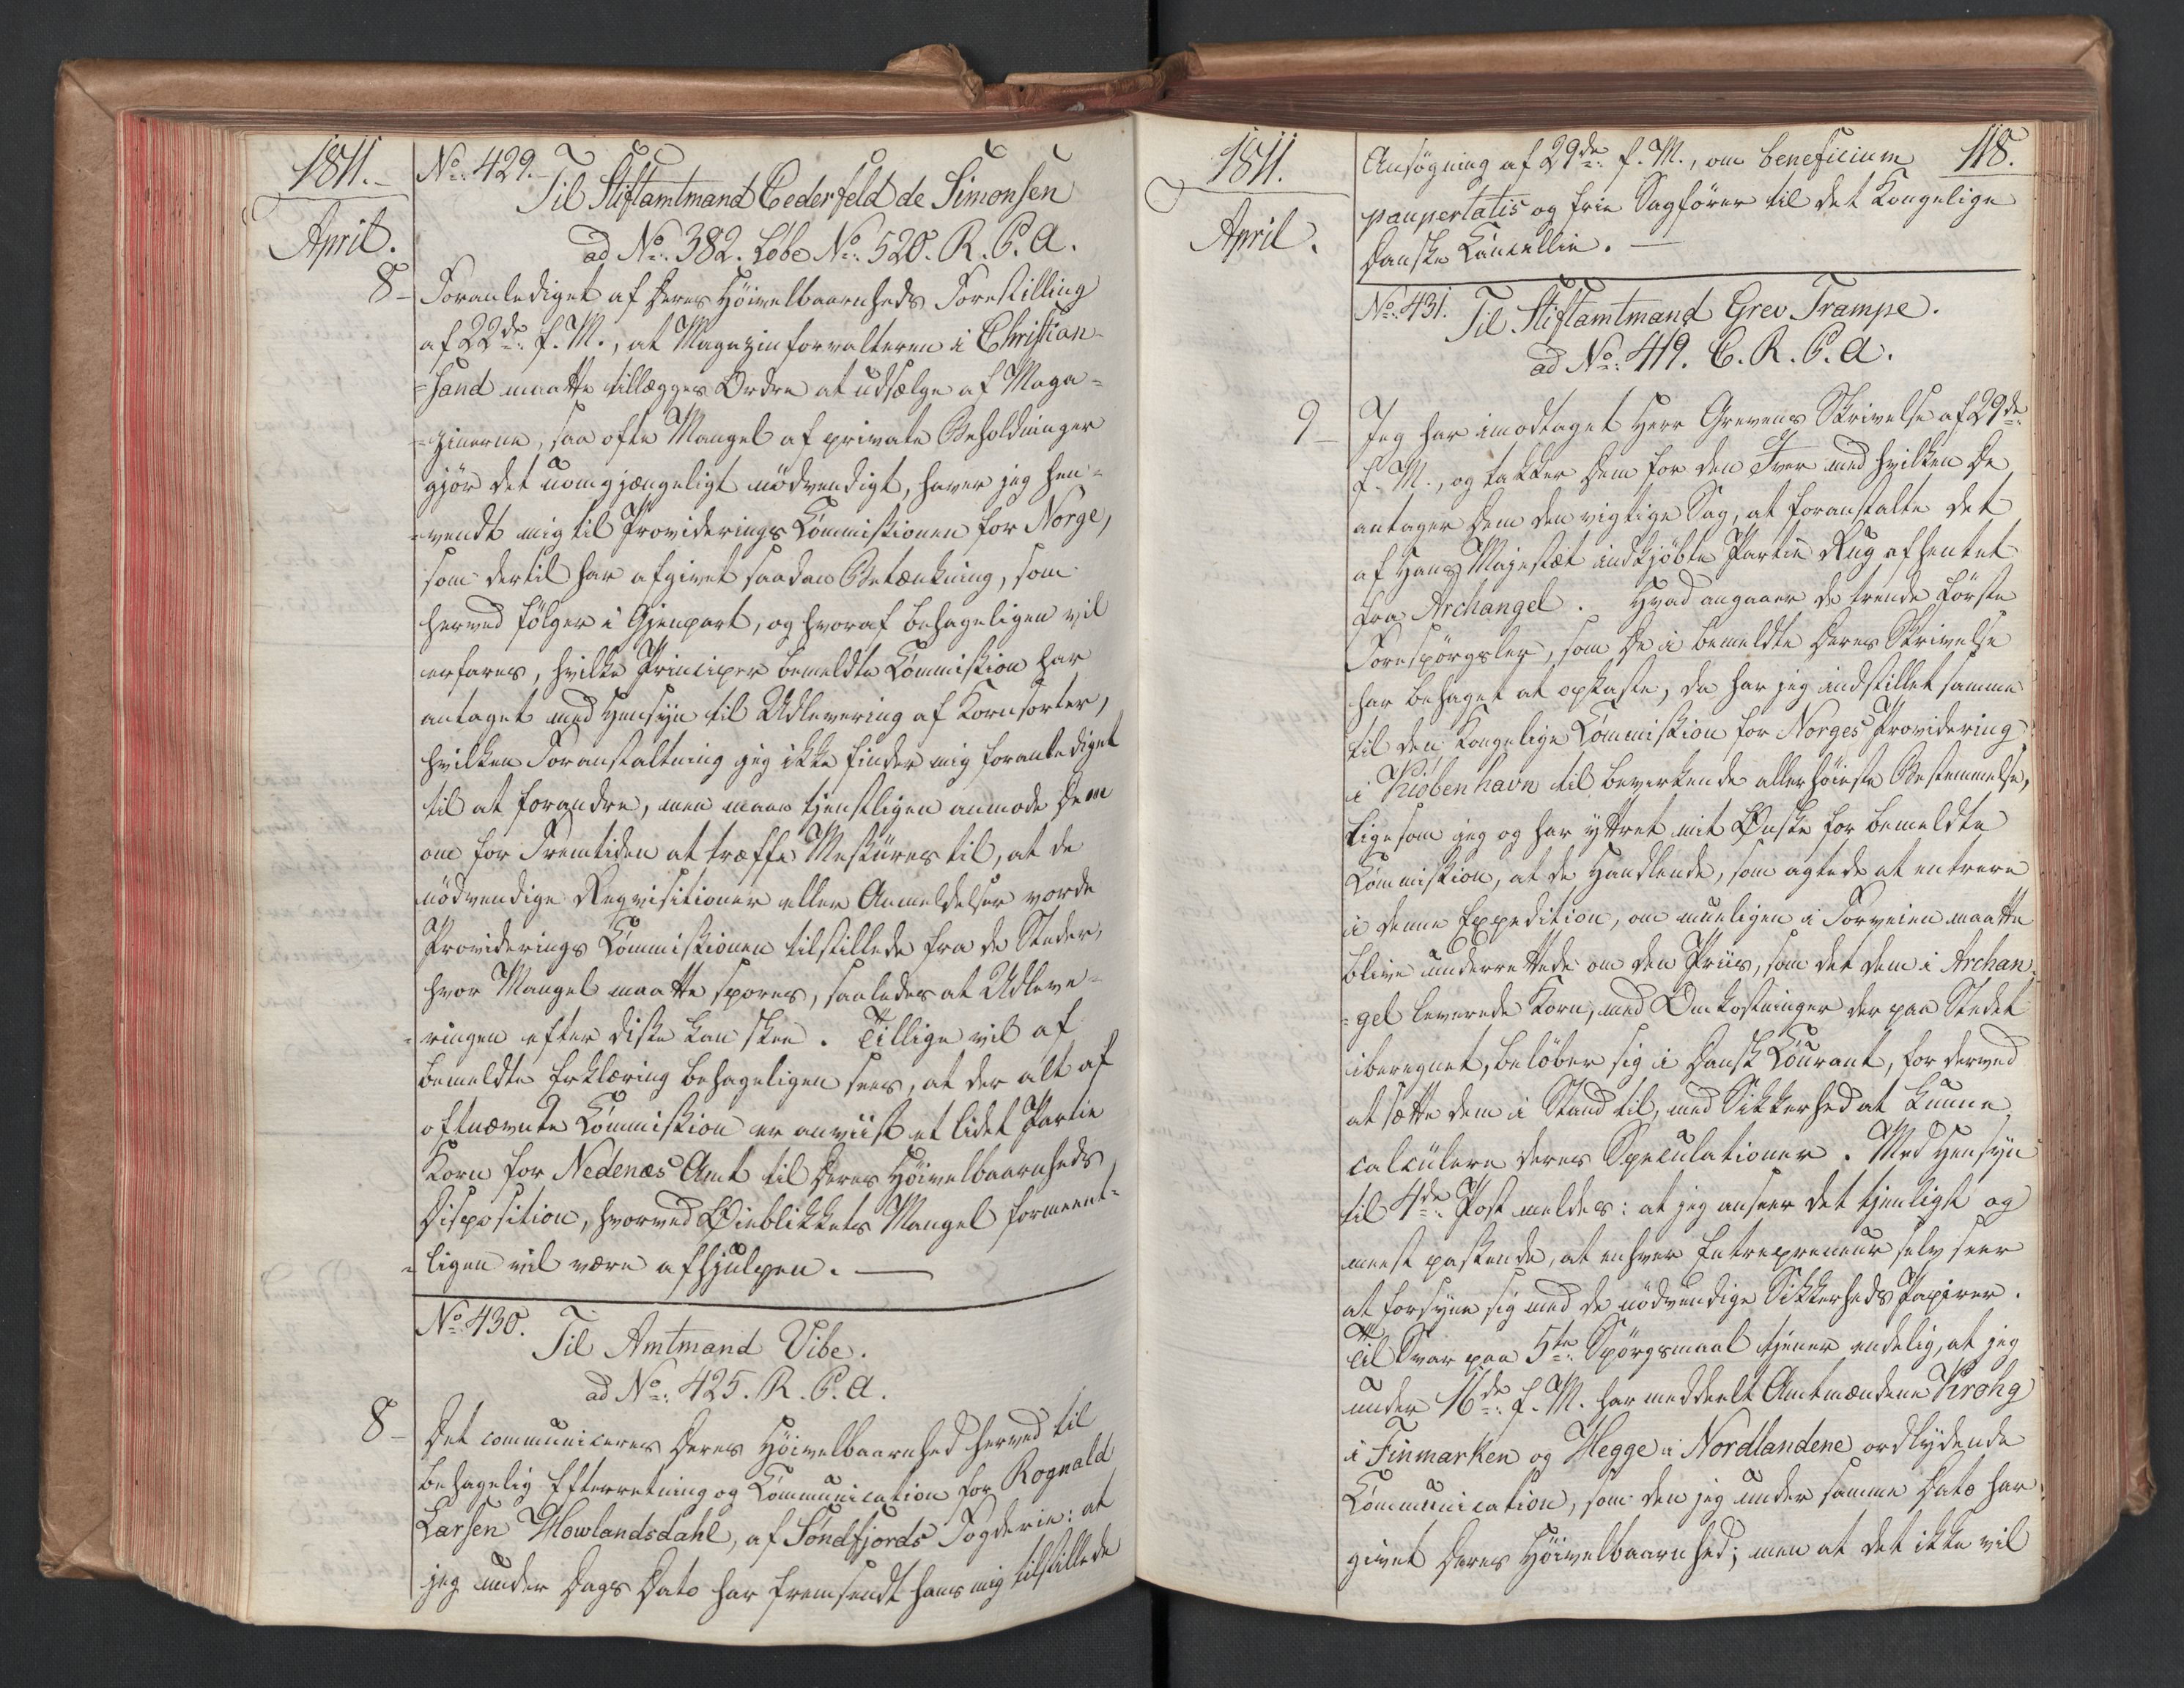 1811.
April.
No. 429.
Til Stiftamtmand Cederfeld de Simonsen
ad No. 382. Løbe No. 520. R. P. A.
8 - Foranlediget af Deres Höivelbaarnheds Forestilling
af 22de f. M., at Magazinforvalteren i Christian-
=sand maatte tillægges Ordre at udsælge af Maga=
=zinerne, saa ofte Mangel af private Beholdninger
gjör det uomgjængeligt nödvendigt, haver jeg hen=
=vendt mig til Providerings Commissionen for Norge,
som dertil har afgivet saadan Betænkning, som
herved fölger i Gjenpart, og hvoraf behageligen vil
erfares, hvilke Principer bemeldte Commission har
antaget med Hensyn til Udlevering af Kornsorter,
hvilken Foranstaltning jeg ikke finder mig foranlediget
til at forandre, men maae tjenstligen anmode Dem
om for Fremtiden at træffe Mesures til, at de
nödvendige Reqvisitioner eller Anmeldelser vorde
Providerings Commissionen tilstillede fra de Steder,
hvor Mangel maatte spores, saaledes at Udleve=
=ringen efter disse kan skee. Tillige vil af
bemeldte Erklæring behageligen sees, at der alt af
oftnævnte Commission er anviist et lidet Partie
Korn for Nedenæs Amt til Deres Höivelbaarnheds
Disposition, hvorved Öieblikkets Mangel formeent=
=ligen vil være afhjulpen. —
No. 430.
Til Amtmand Vibe.
ad No. 425. R. P. A.
8 - Det communiceres Deres Höivelbaarnhed herved til
behagelig Efterretning og Communication for Rognald
Larsen Howlandsdahl, af Söndfjords Fogderie: at
jeg under Dags Dato har fremsendt hans mig tilstillede
1811.
April.
118.
Ansögning af 29de f. M., om beneficium
paupertatis og frie Sagförer til det Kongelige
Danske Cancellie. —
No. 431. Til Stiftamtmand Grev Trampe.
ad No. 419. C. R. P. A.
9 - Jeg har imodtaget Herr Grevens Skrivelse af 29de
f. M., og takker Dem for den Iver med hvilken De
antager Dem den vigtige Sag, at foranstalte det
af Hans Majestæt indkjöbte Partie Rug afhentet
fra Archangel. Hvad angaaer de trende förste
Forespörgsler, som De i bemeldte Deres Skrivelse
har behaget at opkaste, da har jeg indstillet samme
til den Kongelige Commission for Norges Providering
i Kiöbenhavn til bevirkende allerhöieste Bestemmelse,
ligesom jeg og har yttret mit Önske for bemeldte
Commission, at de Handlende, som agtede at entrere
i denne Expedition, om mueligen i Forveien maatte
blive underrettede om den Priis, som det dem i Archan=
=gel leverede Korn, med Omkostninger der paa Stedet
iberegnet, belöber sig i Dansk Courant, for derved
at sætte dem i Stand til, med Sikkerhed at kunne
calculere deres Speculationer. Med Hensyn
til 4de Post meldes: at jeg anseer det tjenligst og
meest passende, at enhver Entrepreneur selv seer
at forsyne sig med de nödvendige Sikkerheds Papirer.
Til Svar paa 5te Spörgsmaal tjener endelig, at jeg
under 16de f. M. har meddeelt Amtmændene Krohg
i Finmarken og Hegge i Nordlandene ordlydende
Communication, som den jeg under samme Dato har
givet Deres Höivelbaarnhed; men at det ikke vil